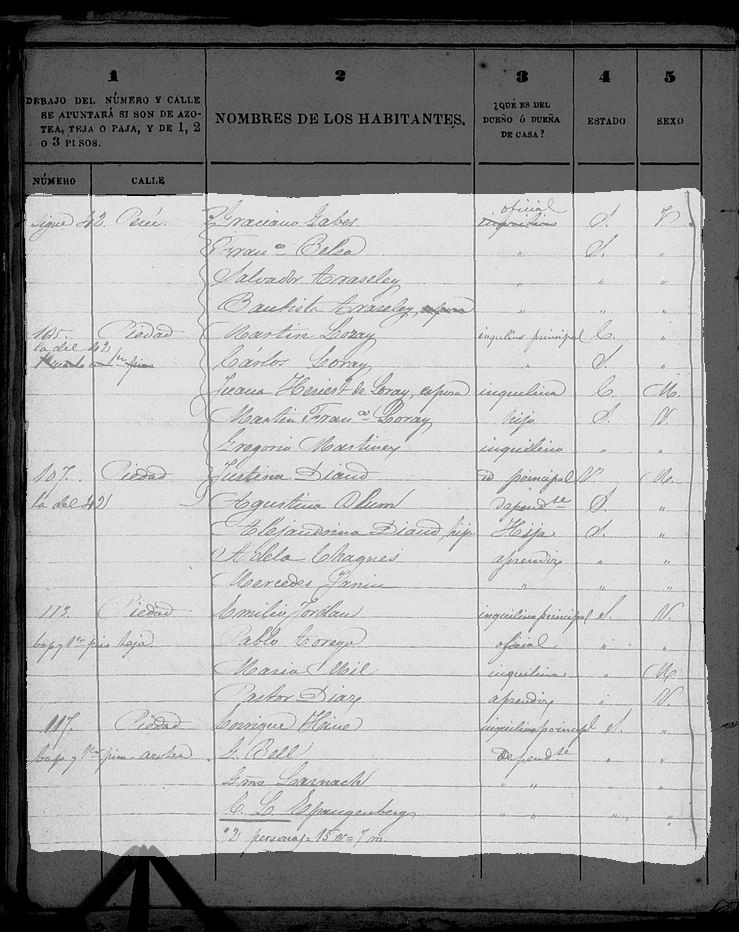 1 2 3 4 5
DEBAJO DEL NÚMERO Y CALLE
SE APUNTARÁ SI SON DE AZO-
TEA, TEJA O PAJA, Y DE 1, 2
O 3 PISOS.
NOMBRES DE LOS HABITANTES.
¿QUÉ ES DEL
DUEÑO Ó DUEÑA
DE CASA?
ESTADO
SEXO
NÚMERO CALLE
Sigue 42 Perú Graciano Gabes oficial S. V.
Fran.co Belsa " S. "
Salvador Araseley " " "
Bautista Araseley, " " "
105 Piedad Martin Loray inquilino principal C. "
la del 42 Cárlos Loray " S. "
Juana de Loray, esposa inquilina C. M.
Martin Fran.co Loray hijo S. V.
Gregorio Martinez inquilino " "
107. Piedad Justina Diand id principal V. M.
la del 42 Agustina depend.te S. "
Alejandrina Diand, hija Hija S. "
Adela Chagnes aprendiz " "
Mercedes Janin " " "
113. Piedad Emilio Jordan inquilino principal S. V.
bajo y 1er piso Pablo oficial " "
Maria Mil inquilina " M.
Pastor Diaz aprendiz " V.
117. Piedad Enrique Heine inquilino principal S. "
bajo y 1er piso azotea G. Bell Depend.te " "
Gmo Larnach " " " "
C. L. Spangenberg " " " "
22 personas = 15 v = 7 m